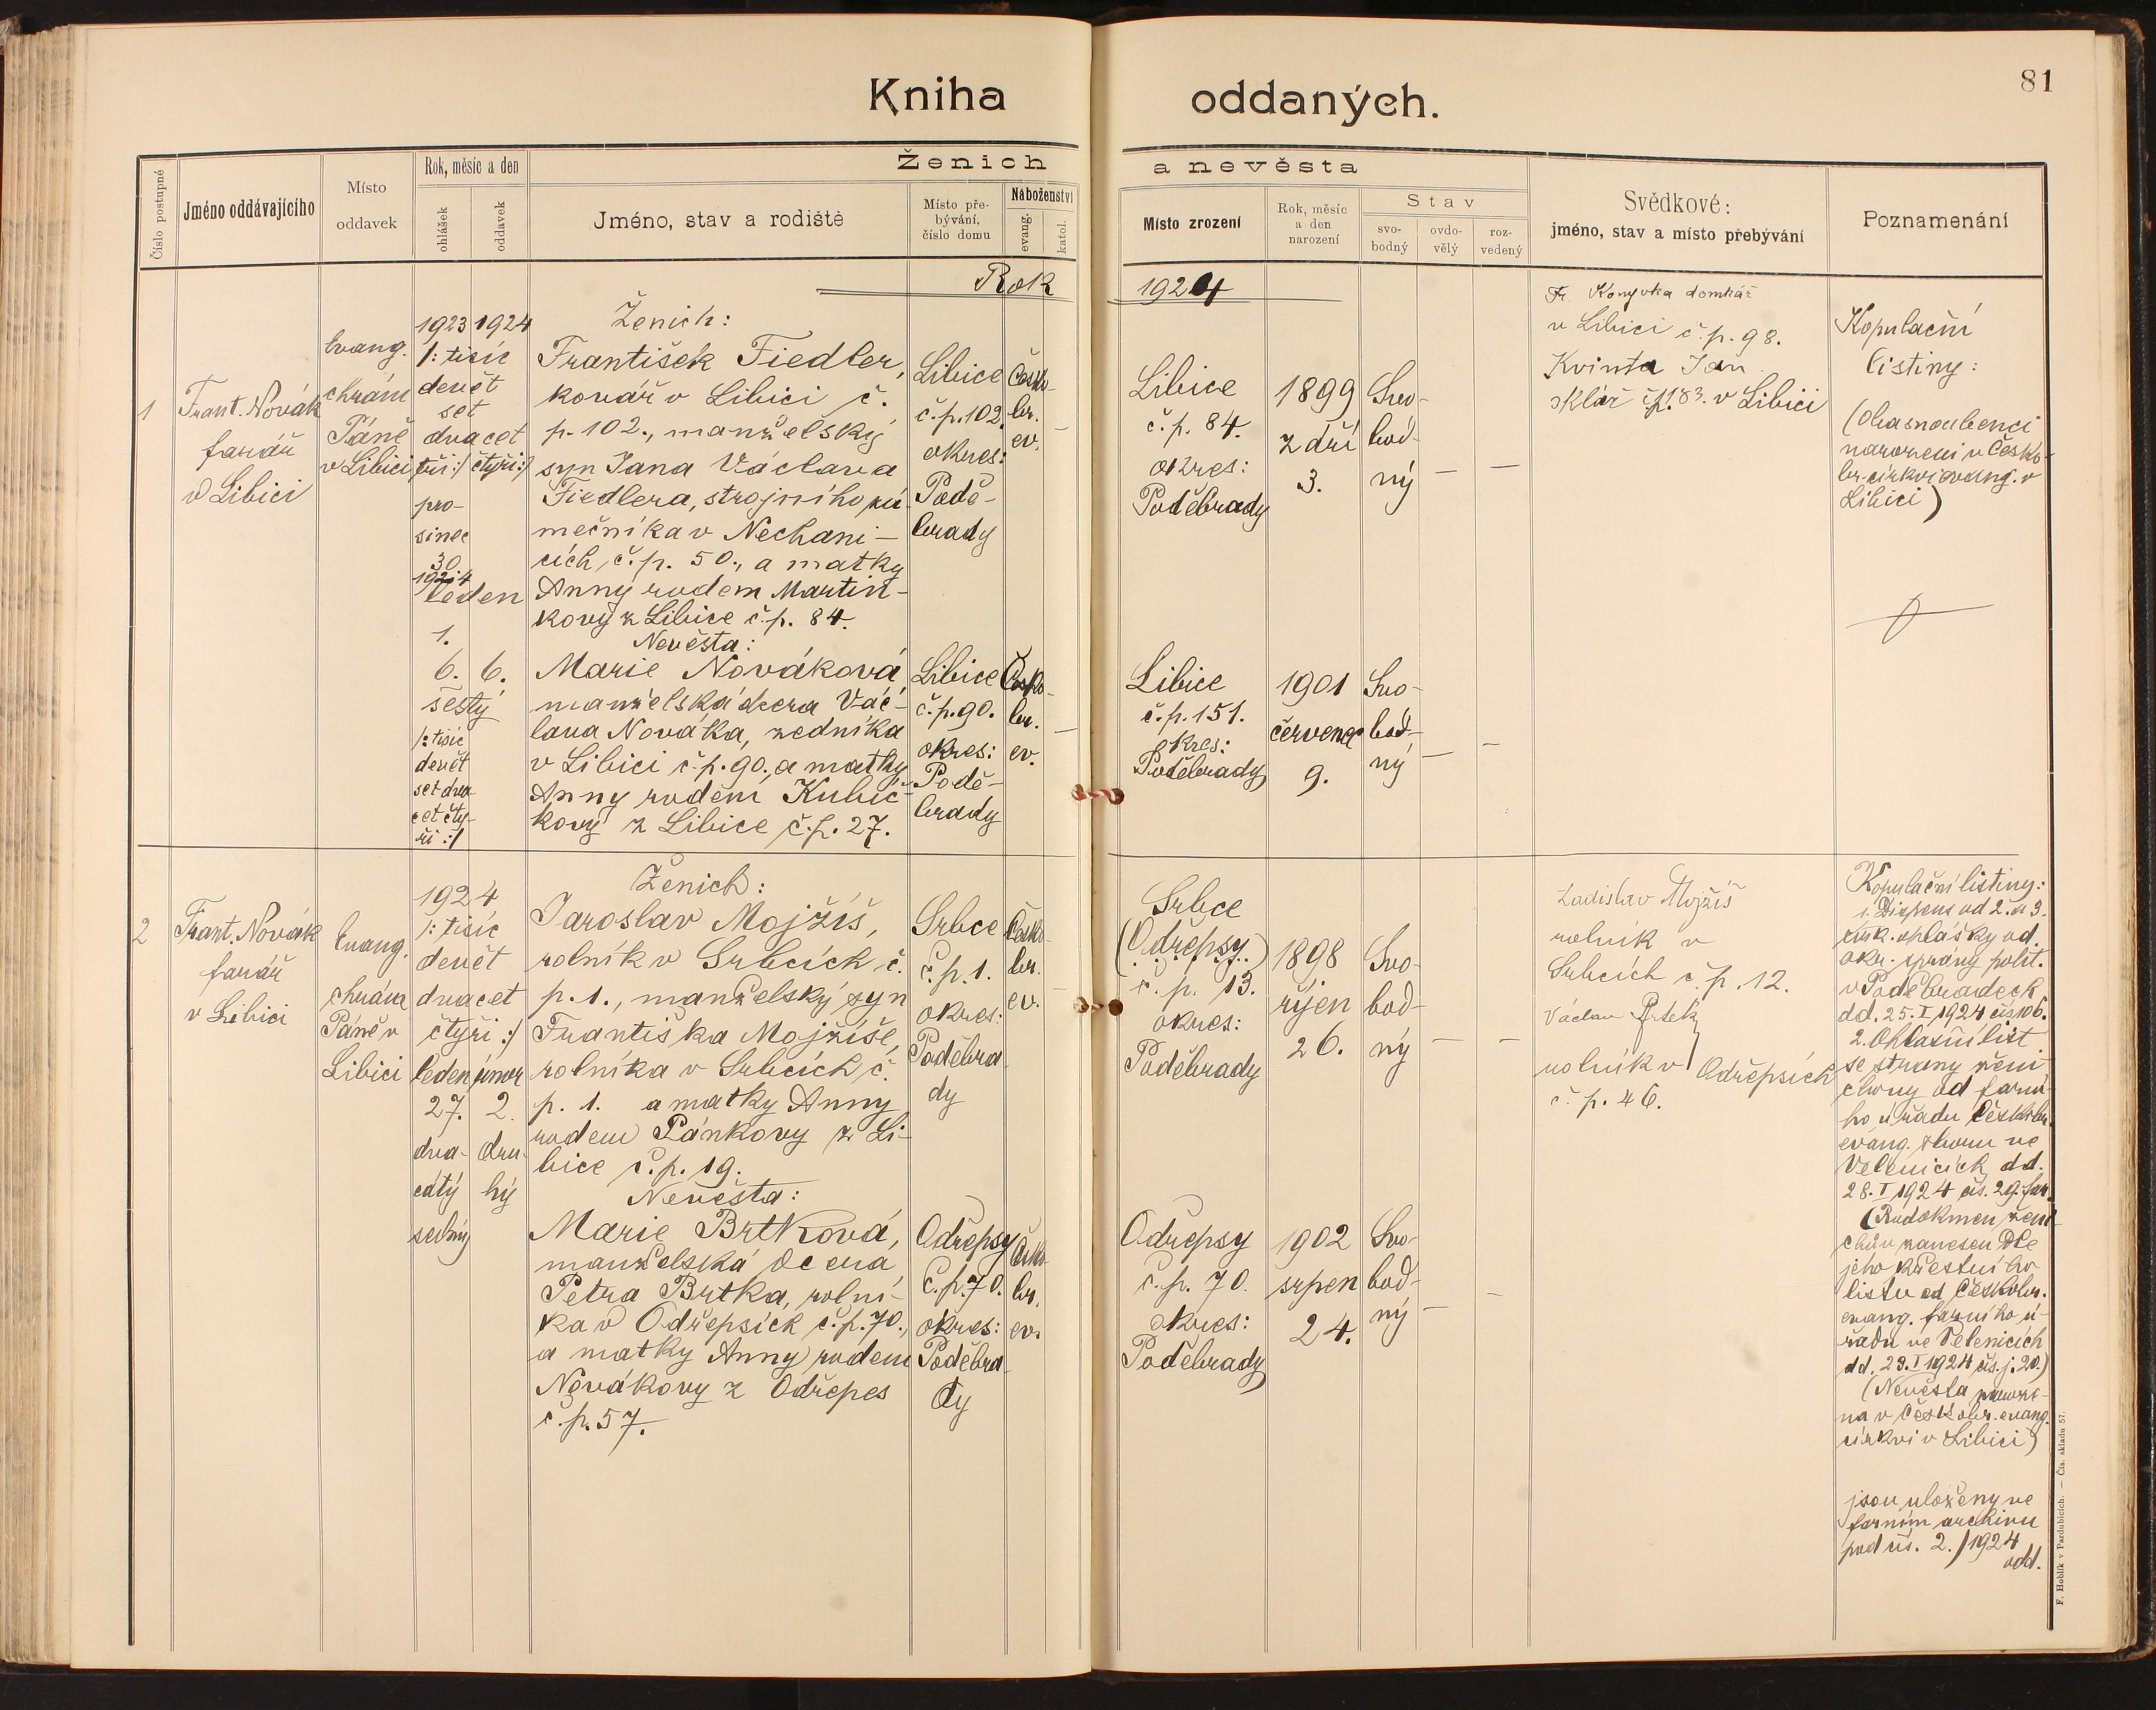 81
Kniha oddaných.
Číslo postupné
Jméno oddávajícího
Místo
oddavek
Rok, měsíc a den
ohlášek
oddavek
Ženich a nevěsta
Jméno, stav a rodiště
Místo pře-
bývání,
číslo domu
Náboženství
evang.
katol.
Místo zrození
Rok, měsíc
a den
narození
Stav
svo-
bodný
ovdo-
vělý
roz-
vedený
Svědkové:
jméno, stav a místo přebývání
Poznamenání
Rok 1924
1
Frant. Novák
farář
v Libici
Evang.
chrám
Páně
v Libici
1923 1924
/: tisíc
devět
set
dvacet
tři :/ čtyři :/
pro-
sinec
30.
1924
leden
1.
6. 6.
šestý
/: tisíc
devět
set dva
cet čty-
ři :/
Ženich:
František Fiedler,
kovář v Libici č.
p. 102., manželský
syn Jana Václava
Fiedlera, strojního zá-
mečníka v Nechani-
cích, č. p. 50., a matky
Anny rodem Martin-
kovy z Libice č. p. 84.
Nevěsta:
Marie Nováková
manželská dcera Vác-
lava Nováka, zedníka
v Libici č. p. 90., a matky
Anny rodem Kubíč-
kovy z Libice č. p. 27.
Libice
č. p. 102.
okres:
Podě-
brady
Česko-
br.
ev.
Libice
č. p. 90.
okres:
Podě-
brady
Česko-
br.
ev.
Libice
č. p. 84.
okres:
Poděbrady
1899
září
3.
Svo-
bod-
ný
Libice
č. p. 151.
okres:
Poděbrady
1901
červenec
9.
Svo-
bod-
ný
Fr. Konyvka domkář
v Libici č. p. 98.
Kvinta Jan
sklář čp. 183. v Libici
Kopulační
listiny:
(Oba snoubenci
narozeni v Česko-
br. církvi evang. v
Libici)
2
Frant. Novák
farář
v Libici
Evang.
chrám
Páně v
Libici
1924
/: tisíc
devět
dvacet
čtyři :/
leden únor
27. 2.
dva- dru-
cátý hý
sedmý
Ženich:
Jaroslav Mojžíš,
rolník v Srbcích č.
p. 1., manželský syn
Františka Mojžíše,
rolníka v Srbcích č.
p. 1. a matky Anny
rodem Pánkovy z Li-
bice č. p. 19.
Nevěsta:
Marie Brtková,
manželská dcera
Petra Brtka, rolní-
ka v Odřepsích č. p. 70.,
a matky Anny rodem
Novákovy z Odřepes
č. p. 57.
Srbce
č. p. 1.
okres:
Poděbra-
dy
Česko-
br.
ev.
Odřepsy
č. p. 70.
okres:
Poděbra-
dy
Česko-
br.
ev.
Srbce
(Odřepsy.)
č. p. 13.
okres:
Poděbrady
1898
říjen
26.
Svo-
bod-
ný
Odřepsy
č. p. 70.
okres:
Poděbrady
1902
srpen
24.
Svo-
bod-
ný
Ladislav Mojžíš
rolník v
Srbcích č. p. 12.
Václav Brtek
rolník v Odřepsích
č. p. 46.
Kopulační listiny:
1. Dispens od 2. a 3.
círk. ohlášky od
okr. správy polit.
v Poděbradech
dd. 25. I. 1924 čís. 106.
2. Ohlašní list
se strany ženi-
chovy od farní-
ho úřadu Českobr.
evang. sboru ve
Velenicích dd.
28. I. 1924 čís. 29. far.
(Rodokmen ženi-
chův zanesen dle
jeho křestního
listu od Českobr.
evang. farního ú-
řadu ve Velenicích
dd. 29. I. 1924 čís. j. 20.)
(Nevěsta naroze-
na v Českobr. evang.
církvi v Libici)
jsou uloženy ve
farním archivu
pod čís. 2./1924
odd.
F. Hoblík v Pardubicích. — Čís. skladu 57.